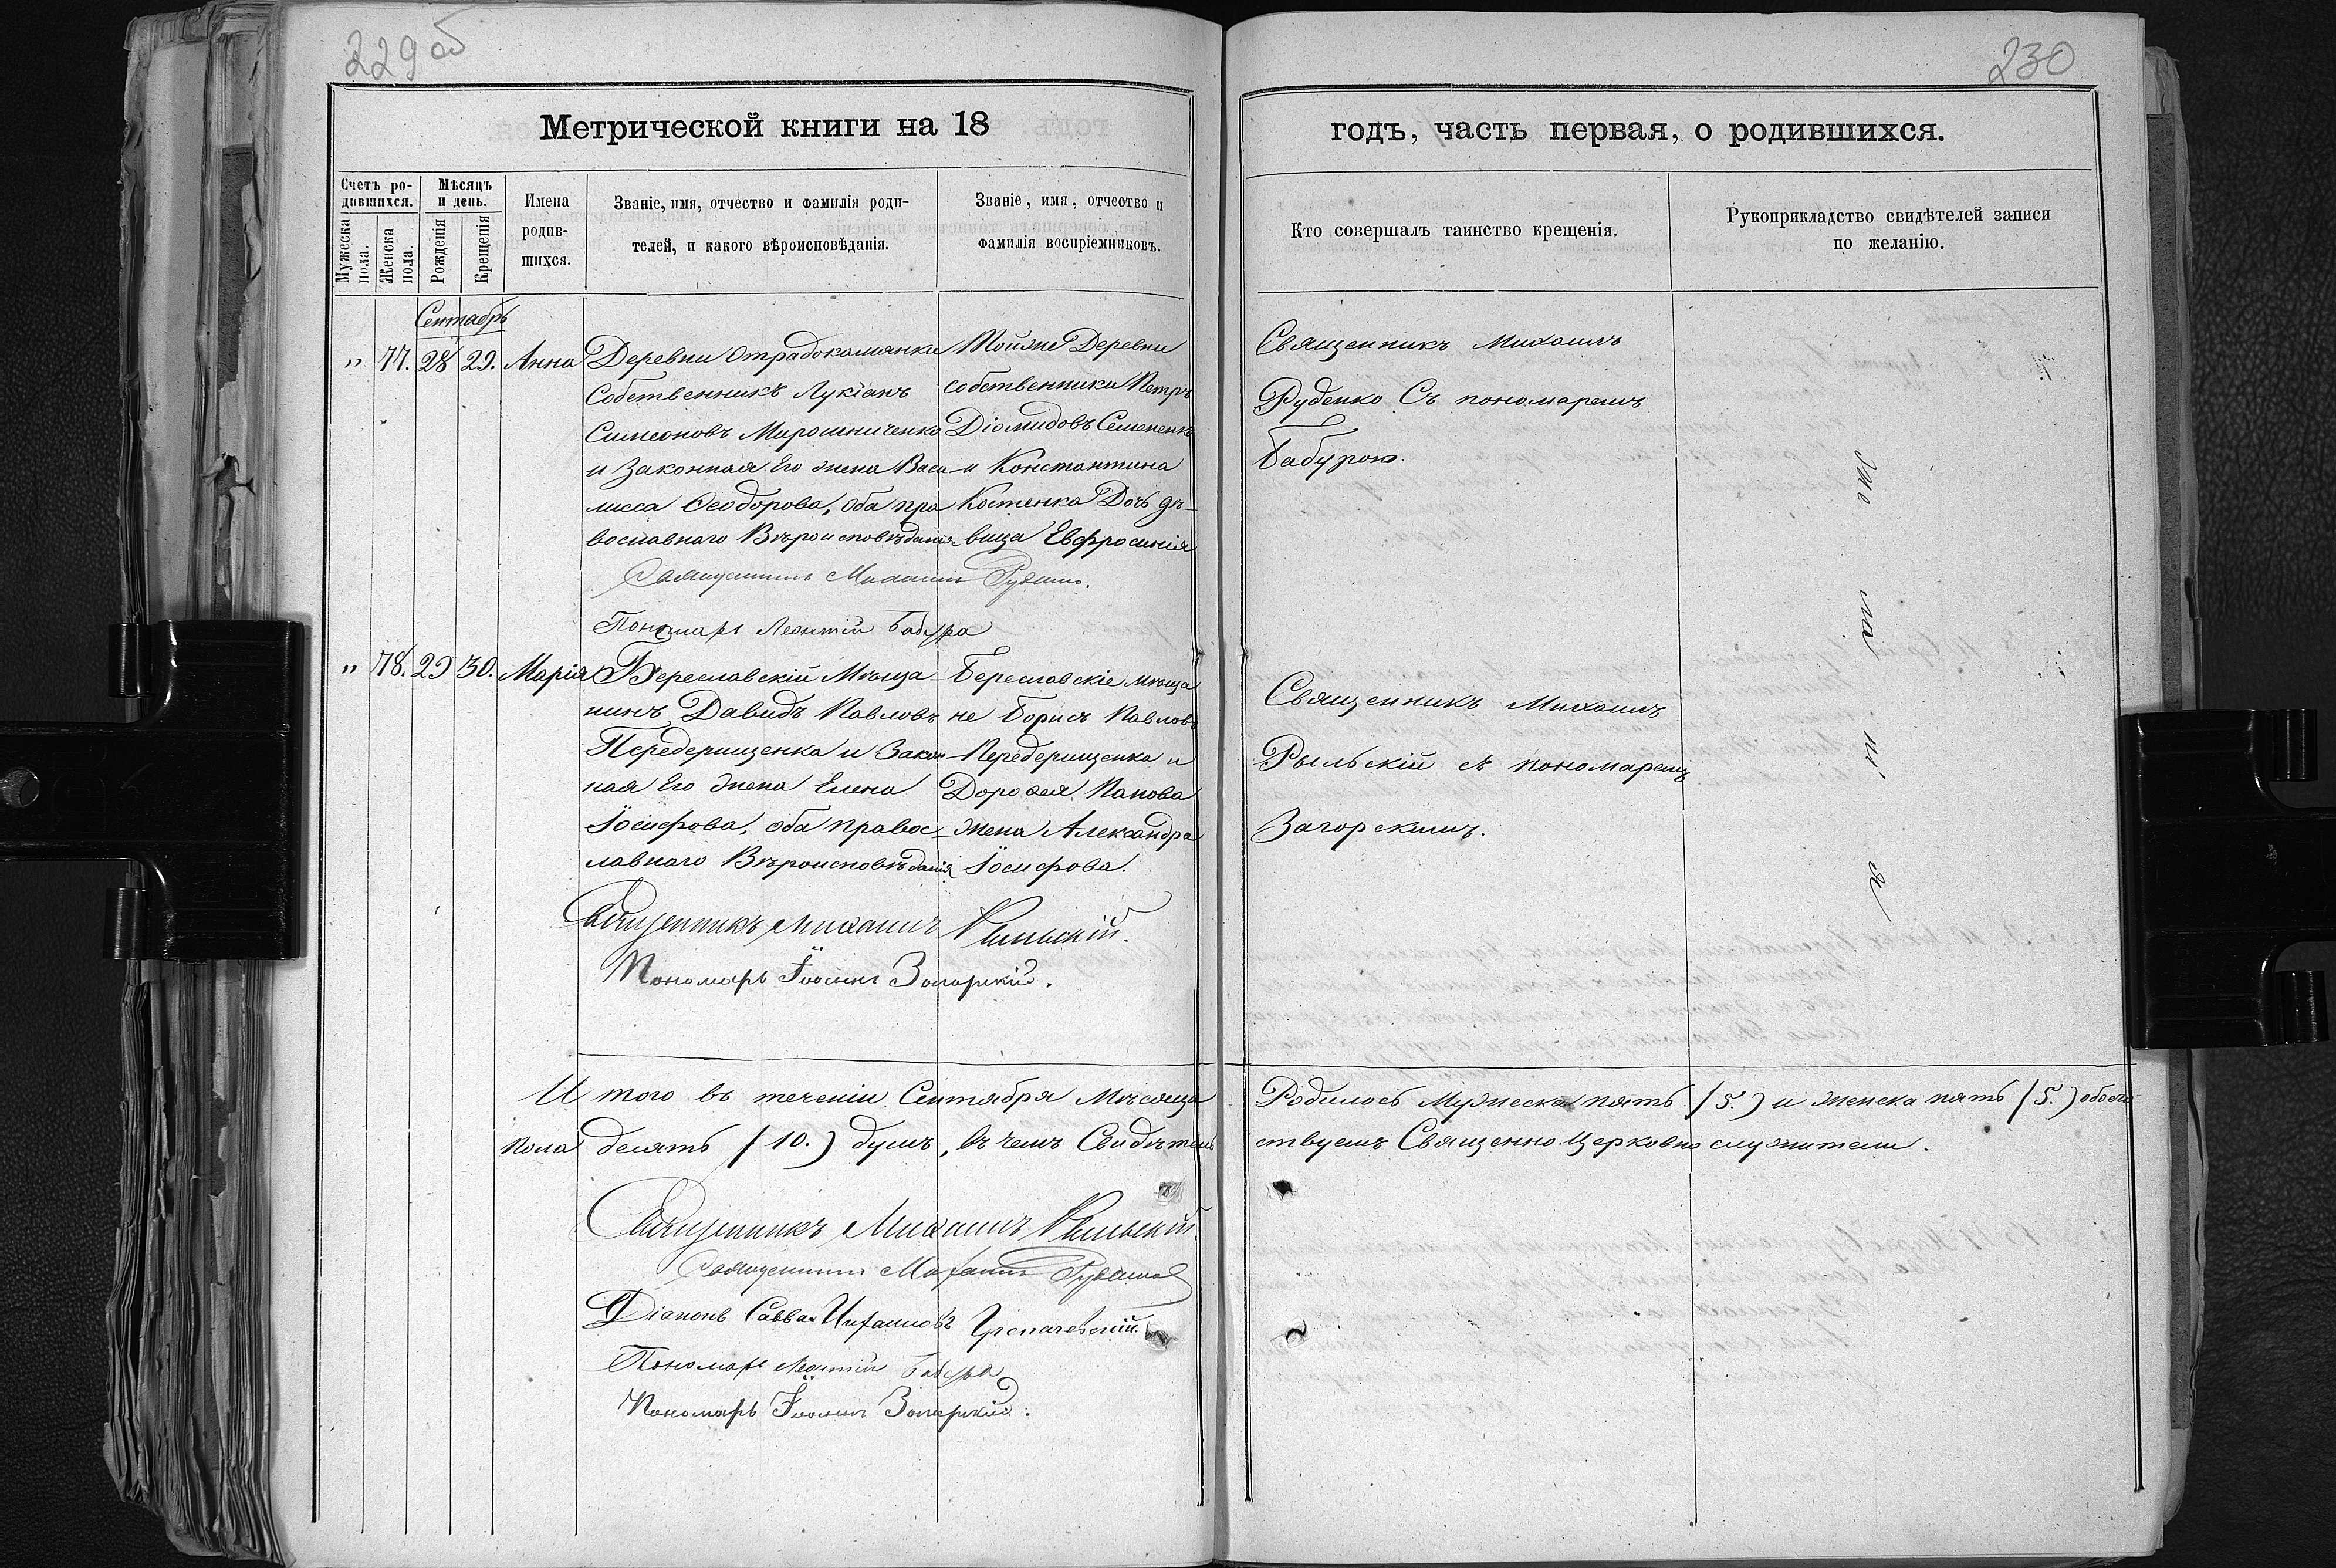 229 об
230
Метрической книги на 18
годъ, часть первая, о родившихся.
Счетъ ро-
дившихся.
Мужеска
пола.
Женска
пола.
Мѣсяцъ
и день.
Рожденія
Крещенія
Имена
родив-
шихся.
Званіе, имя, отчество и фамилія роди-
телей, и какого вѣроисповѣданія.
Званіе, имя, отчество и
фамилія воспріемниковъ.
Кто совершалъ таинство крещенія.
Рукоприкладство свидѣтелей записи
по желанію.
Сентябрь
" 77. 28 29. Анна
Деревни Отрадокамянки
Собственникъ Лукіанъ
Симеоновъ Мирошниченко
и Законная Его жена Васи-
лисса Ѳеодорова, оба пра
вославнаго Вѣроисповѣданія
Тойже Деревни
собственники Петръ
Діомидовъ Семененко
и Константина
Костенка Дочь дѣ-
вица Евфросинія
Священникъ Михаилъ
Руденко Съ пономаремъ
Бабурою.
Священникъ Михаилъ Руденко.
Пономарь Леонтій Бабура
" 78. 29 30. Марія
Береславскій Мѣща-
нинъ Давидъ Павловъ
Передерищенка и Закон-
ная Его жена Елена
Іосифова, оба правос-
лавнаго Вѣроисповѣданія
Береславскіе мѣща
не Борисъ Павловъ
Передерищенка и
Дорофея Папова
жена Александра
Іосифова.
Священникъ Михаилъ
Рыльскій съ пономаремъ
Загорскимъ.
Священникъ Михаилъ Рыльскій.
Пономарь Іоаннъ Загорскій.
И того въ теченіи Сентября Мѣсяца Родилось Мужеска пять (5.) и женска пять (5.) обоего
пола десять (10.) душъ, въ чемъ Свидѣтельствуемъ Священно Церковно служители.
Священникъ Михаилъ Рыльскій
Священникъ Михаилъ Руденко
Діаконъ Савва
Пономарь Леонтій Бабура
Пономарь Іоаннъ Загорскій.